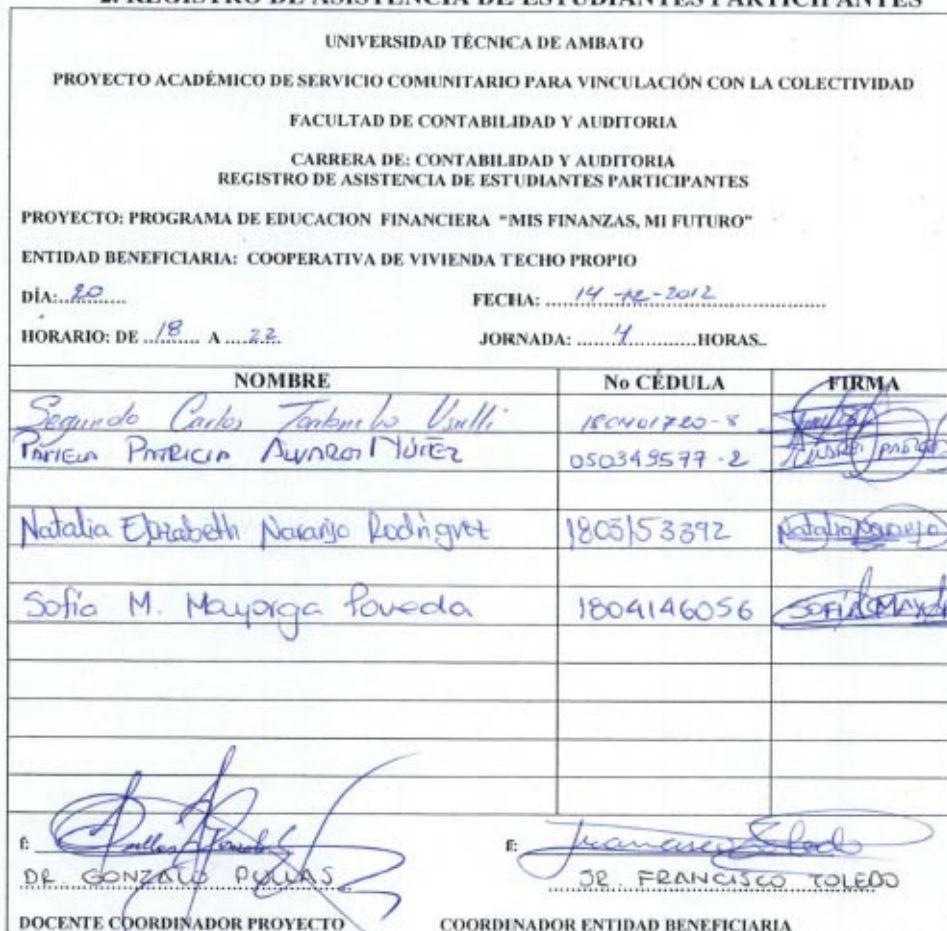 2. REGISTRO DE ASISTENCIA DE ESTUDIANTES PARTICIPANTES
UNIVERSIDAD TÉCNICA DE AMBATO
PROYECTO ACADÉMICO DE SERVICIO COMUNITARIO PARA VINCULACIÓN CON LA COLECTIVIDAD
FACULTAD DE CONTABILIDAD Y AUDITORIA
CARRERA DE: CONTABILIDAD Y AUDITORIA
REGISTRO DE ASISTENCIA DE ESTUDIANTES PARTICIPANTES
PROYECTO: PROGRAMA DE EDUCACION FINANCIERA "MIS FINANZAS, MI FUTURO"
ENTIDAD BENEFICIARIA: COOPERATIVA DE VIVIENDA TECHO PROPIO
DÍA: 20 FECHA: 14-12-2012
HORARIO: DE 18 A 22 JORNADA: 4 HORAS.
NOMBRE No CÉDULA FIRMA
Segundo Carlos 180401720-8
PATRICIA NÚÑEZ 050349577-2
Natalia Elizabeth Naranjo Rodríguez 1803153392 Natalia Naranjo
Sofía M. Mayorga Poveda 1804146056 SOFÍA MAYOR
f: f: Francisco Toledo
DR. GONZALO PULLAS SR. FRANCISCO TOLEDO
DOCENTE COORDINADOR PROYECTO COORDINADOR ENTIDAD BENEFICIARIA